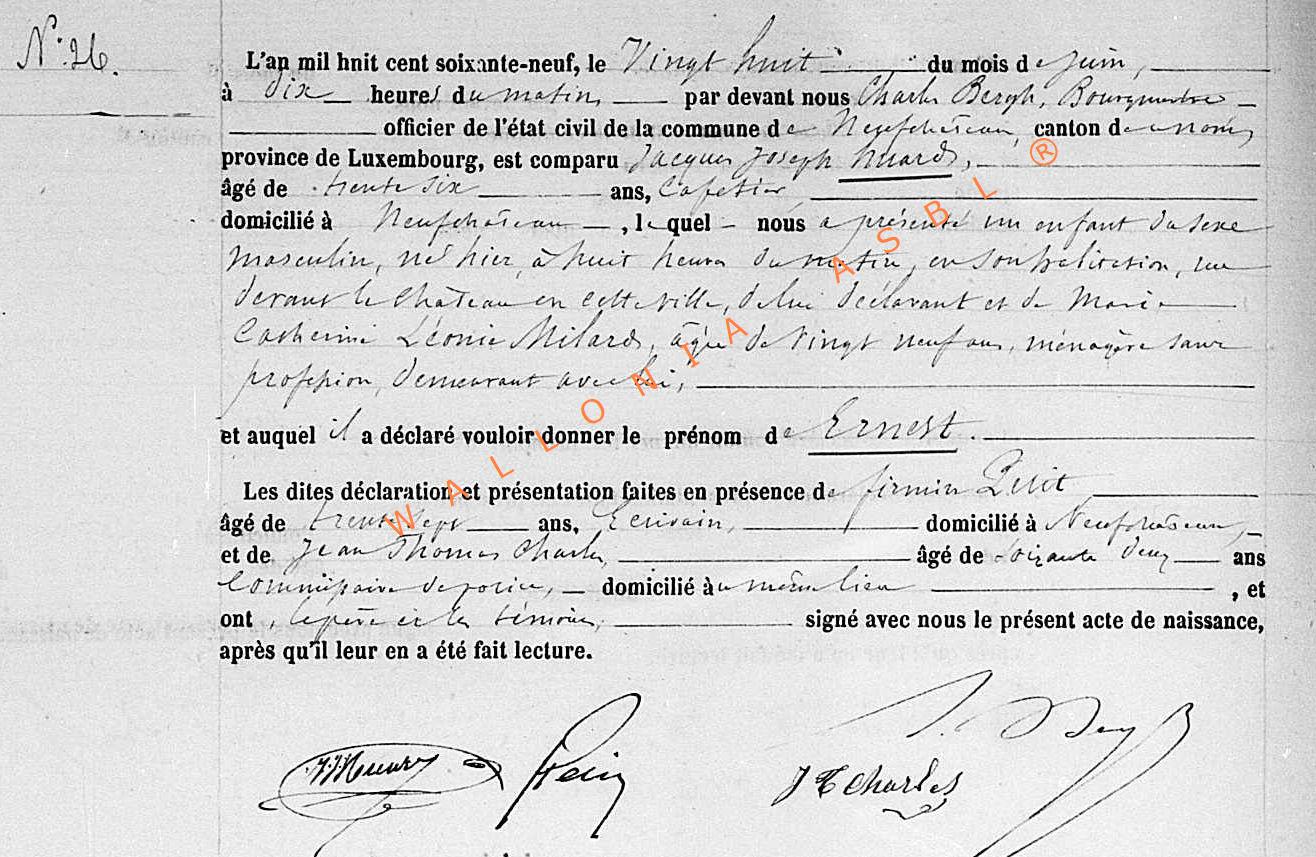 N° 26.
L'an mil hnit cent soixante-neuf, le Vingt huit du mois de Juin,
à dix heures du matin, par devant nous Charles Bergh, Bourgmestre
officier de l'état civil de la commune de Neufchâteau, canton de ce nom,
province de Luxembourg, est comparu Jacques Joseph Huard,
âgé de trente six ans, Cafetier,
domicilié à Neufchâteau, lequel nous a présenté un enfant du sexe
masculin, né hier, à huit heures du matin, en son habitation, rue
devant le Château en cette ville, de lui déclarant et de Marie
Catherine Léonie Milard, âgée de vingt neuf ans, ménagère sans
profession, demeurant avec lui,
et auquel il a déclaré vouloir donner le prénom de Ernest.
Les dites déclaration et présentation faites en présence de firmin Petit,
âgé de trente sept ans, Ecrivain, domicilié à Neufchâteau,
et de Jean Thomas Charles, âgé de soixante deux ans
Commissaire de police, domicilié au même lieu, et
ont, le père et les témoins, signé avec nous le présent acte de naissance,
après qu'il leur en a été fait lecture.
J T Charles
WALLONIA ASBL ®